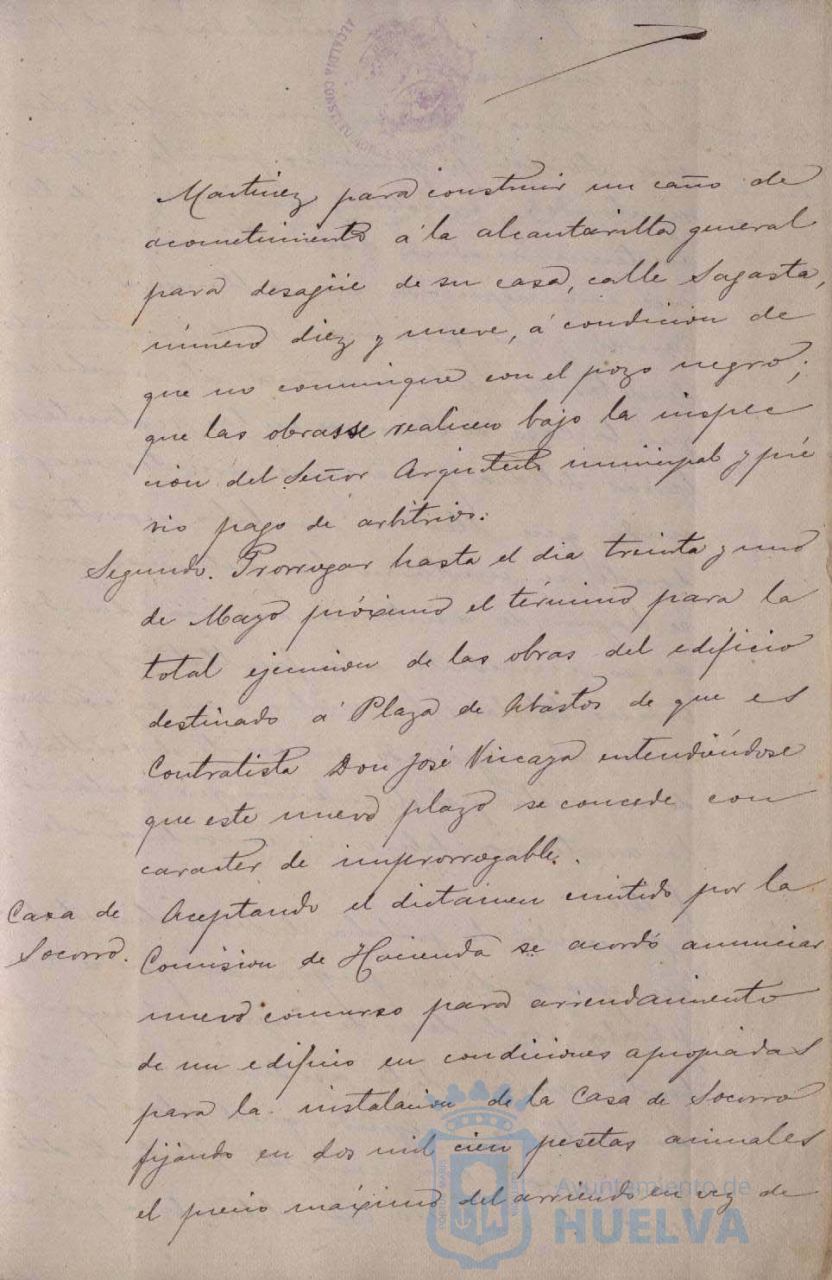 ALCALDIA CONSTITU
Martinez para construir un caño de
acometimiento á la alcantarilla general
para desagüe de su casa, calle Sagasta,
número diez y nueve, á condicion de
que no comunique con el pozo negro;
que las obras se realicen bajo la inspec
cion del Señor Arquitecto municipal y pré
vio pago de arbitrios.
Segundo. Prorrogar hasta el dia treinta y uno
de Mayo próximo el término para la
total ejecucion de las obras del edificio
destinado á Plaza de Abastos de que es
Contratista Don José Vizcaya entendiéndose
que este nuevo plazo se concede con
caracter de improrrogable.
Casa de
Socorro.
Aceptando el dictamen emitido por la
Comision de Hacienda se acordó anunciar
nuevo concurso para arrendamiento
de un edificio en condiciones apropiadas
para la instalacion de la Casa de Socorro
fijando en dos mil cien pesetas anuales
el precio máximo del arriendo en vez de
Ayuntamiento de
HUELVA